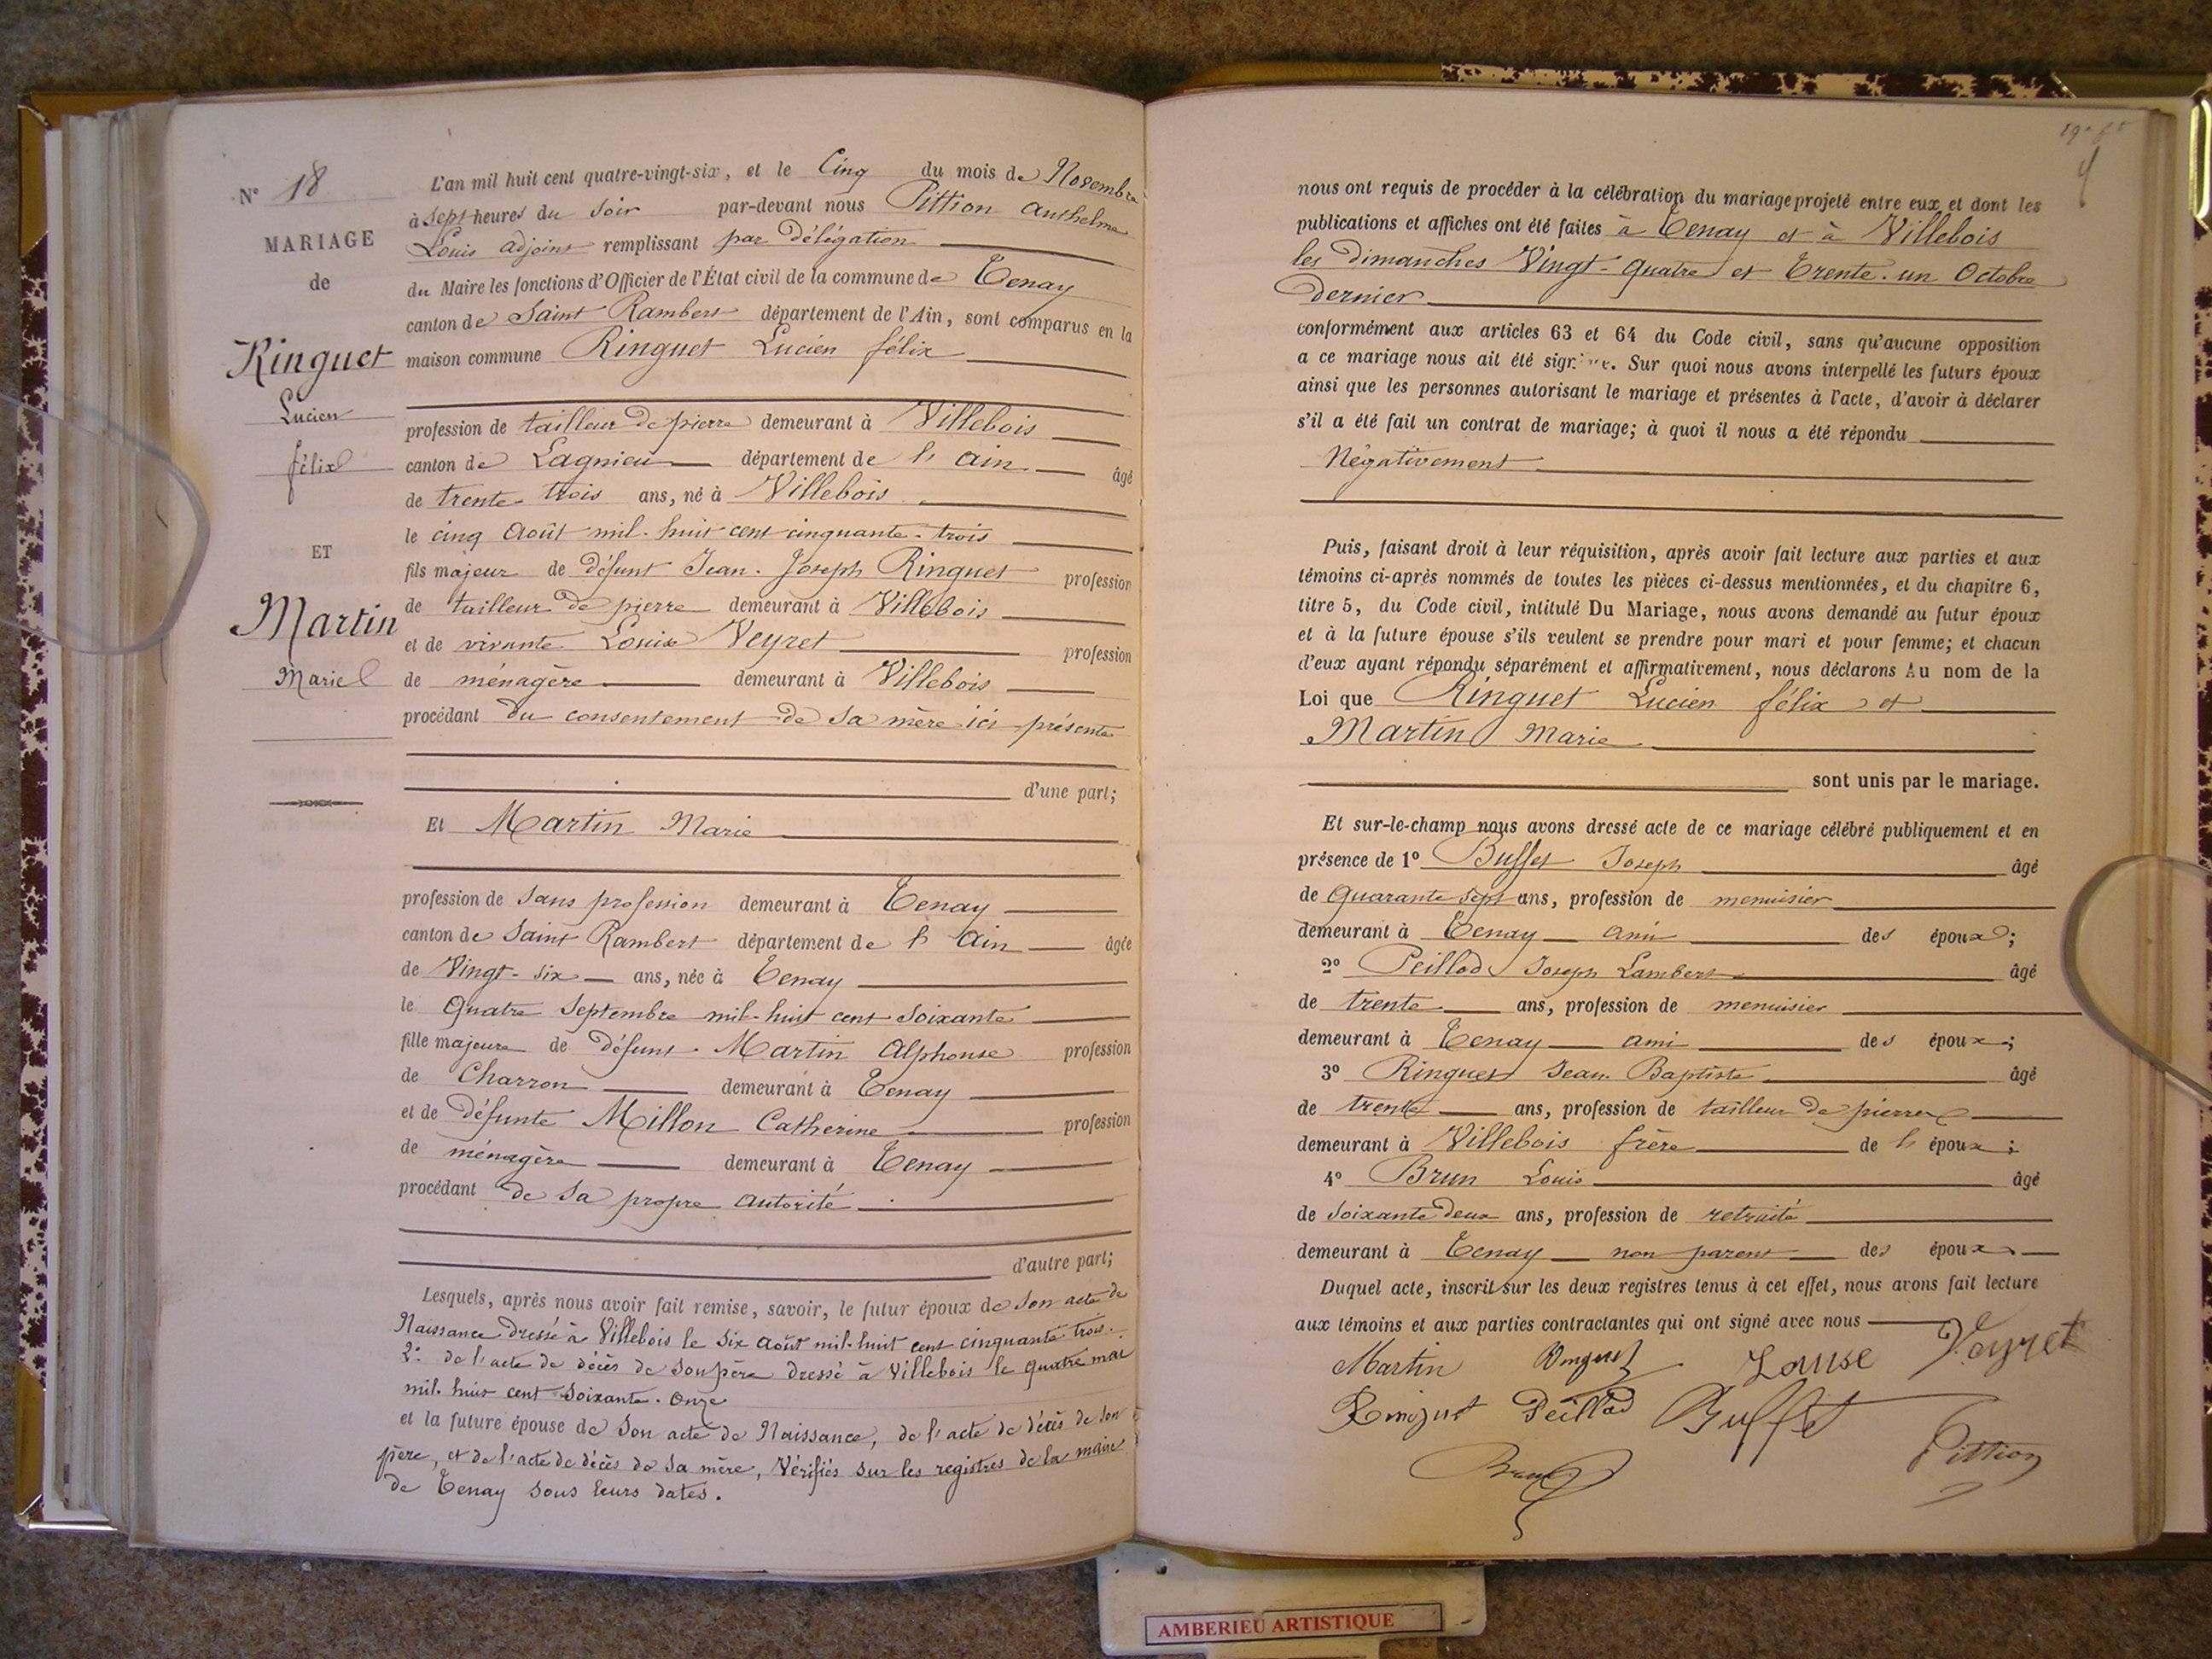 N° 18
MARIAGE
de
Ringuet
Lucien
félix
ET
Martin
Marie
L'an mil huit cent quatre-vingt-six, et le Cinq du mois de Novembre
à Sept heures du Soir par-devant nous Pittion Anthelme
Louis adjoint remplissant par délégation
du Maire les fonctions d'Officier de l'État civil de la commune de Tenay
canton de Saint Rambert département de l'Ain, sont comparus en la
maison commune Ringuet Lucien félix
profession de tailleur de pierre demeurant à Villebois
canton de Lagnieu département de l'ain âgé
de trente-trois ans, né à Villebois
le cinq Août mil-huit cent cinquante-trois
fils majeur de défunt Jean-Joseph Ringuet profession
de tailleur de pierre demeurant à Villebois
et de vivante Louise Veyret profession
de ménagère demeurant à Villebois
procédant du consentement de sa mère ici présente
d'une part;
Et Martin Marie
profession de Sans profession demeurant à Tenay
canton de Saint Rambert département de l'Ain âgée
de Vingt-six ans, née à Tenay
le Quatre Septembre mil-huit cent Soixante
fille majeure de défunt Martin Alphonse profession
de Charron demeurant à Tenay
et de défunte Millon Catherine profession
de ménagère demeurant à Tenay
procédant de sa propre autorité
d'autre part;
Lesquels, après nous avoir fait remise, savoir, le futur époux de Son acte de
Naissance dressé à Villebois le Six Août mil-huit cent cinquante trois.
2° de l'acte de décès de son père dressé à Villebois le quatre mai
mil-huit cent Soixante-Onze
et la future épouse de Son acte de Naissance, de l'acte de décès de son
père, et de l'acte de décès de sa mère, Vérifiés sur les registres de la mairie
de Tenay sous leurs dates.
nous ont requis de procéder à la célébration du mariage projeté entre eux et dont les
publications et affiches ont été faites à Tenay et à Villebois
les dimanches Vingt-Quatre et Trente-un Octobre
dernier
conformément aux articles 63 et 64 du Code civil, sans qu'aucune opposition
a ce mariage nous ait été signifiée. Sur quoi nous avons interpellé les futurs époux
ainsi que les personnes autorisant le mariage et présentes à l'acte, d'avoir à déclarer
s'il a été fait un contrat de mariage; à quoi il nous a été répondu
Négativement
Puis, faisant droit à leur réquisition, après avoir fait lecture aux parties et aux
témoins ci-après nommés de toutes les pièces ci-dessus mentionnées, et du chapitre 6,
titre 5, du Code civil, intitulé Du Mariage, nous avons demandé au futur époux
et à la future épouse s'ils veulent se prendre pour mari et pour femme; et chacun
d'eux ayant répondu séparément et affirmativement, nous déclarons Au nom de la
Loi que Ringuet Lucien félix et
Martin Marie
sont unis par le mariage.
Et sur-le-champ nous avons dressé acte de ce mariage célébré publiquement et en
présence de 1° Buffet Joseph âgé
de Quarante Sept ans, profession de menuisier
demeurant à Tenay ami des époux;
2° Peillod Joseph Lambert âgé
de trente ans, profession de menuisier
demeurant à Tenay ami des époux;
3° Ringuet Jean-Baptiste âgé
de trente ans, profession de tailleur de pierre
demeurant à Villebois frère de l'époux;
4° Brun Louis âgé
de Soixante deux ans, profession de retraité
demeurant à Tenay non parent des époux
Duquel acte, inscrit sur les deux registres tenus à cet effet, nous avons fait lecture
aux témoins et aux parties contractantes qui ont signé avec nous
Martin Ringuet Louise Veyret
Ringuet Peillod Buffet
Brun Pittion
AMBERIEU ARTISTIQUE